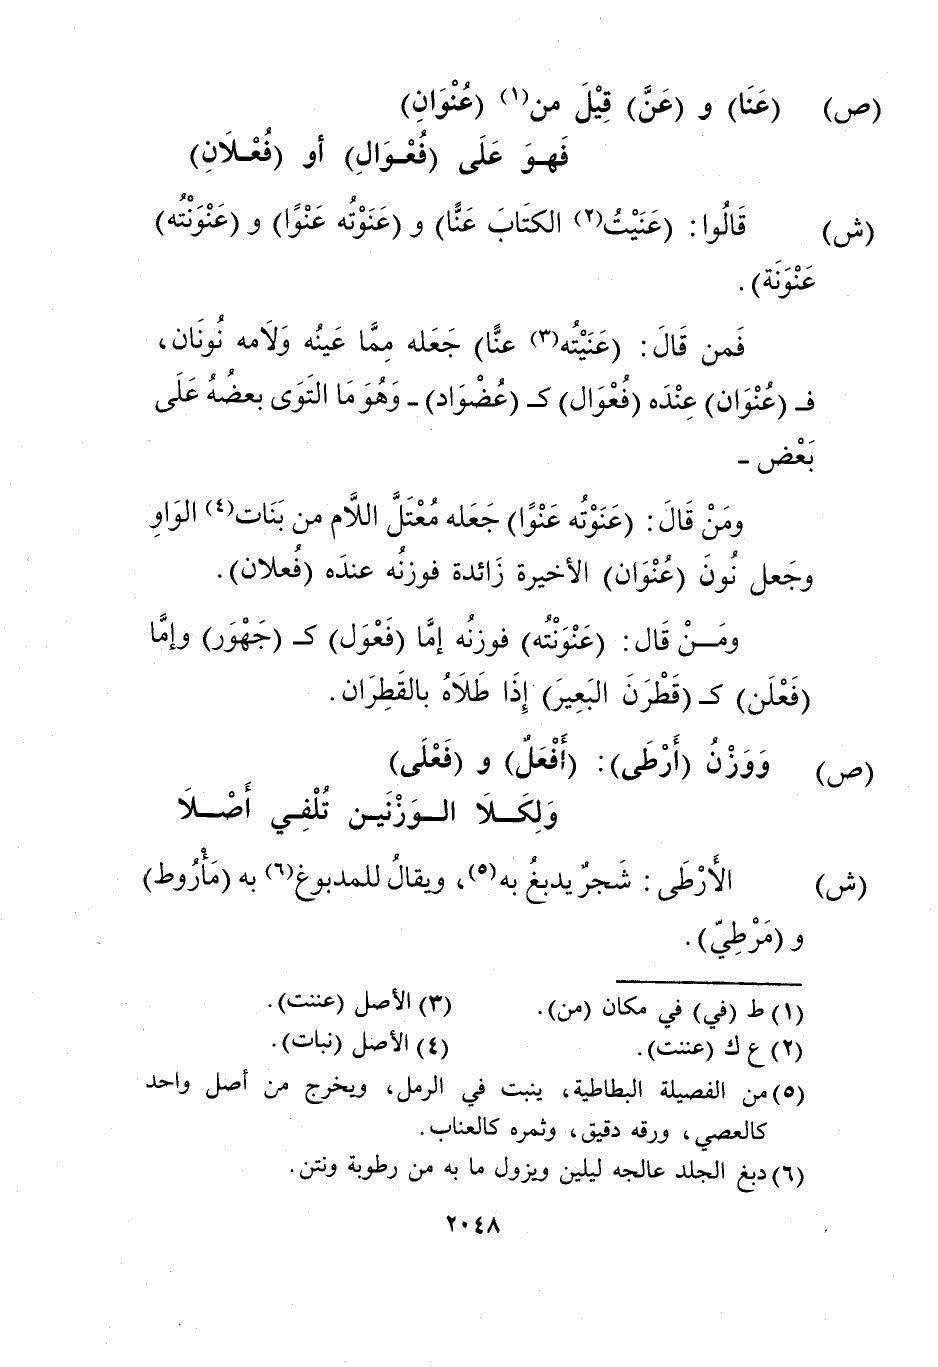 (ص) (عَنَا) و (عَنَّ) قِيْلَ من(١) (عُنْوَانِ)
فَهـوَ عَلَى (فُعْـوَالِ) أو (فُعْـلَانِ)
(ش) قَالُوا: (عَنَيْتُ(٢) الكتَابَ عَنًّا) و (عَنَوْتُه عَنْوًا) و (عَنْوَنْتُه)
عَنْوَنَة).
فَمن قَالَ: (عَنَيْتُه(٣) عنًّا) جَعَله مِمَّا عَينُه وَلَامه نُونَان،
فـ (عُنْوَان) عِنْدَه (فُعْوَال) كـ (عُضْوَاد) ـ وَهُوَ مَا التَوَى بعضُهُ عَلَى
بَعْض ـ
ومَنْ قَالَ: (عَنَوْتُه عَنْوًا) جَعَله مُعْتَلَّ اللَّام من بَنَات(٤) الوَاوِ
وجَعل نُونَ (عُنْوَان) الأخيرة زَائدة فوزنُه عندَه (فُعلان).
ومَـــنْ قَال: (عَنْوَنْتُه) فوزنُه إمَّا (فَعْوَل) كـ (جَهْوَر) وإمَّا
(فَعْلَن) كـ (قَطْرَنَ البَعِيرَ) إِذَا طَلَاهُ بالقَطِرَان.
(ص) وَوَزْنُ (أَرْطَى): (أَفْعَلٌ) و (فَعْلَى)
وَلِكَــلَا الــوَزْنَيـن تُلْفِـي أَصْــلَا
(ش) الأَرْطَى: شَجرٌ يدبغُ به(٥)، ويقالُ للمدبوغ(٦) به (مَأْرُوط)
و (مَرْطِيّ).
(١) ط (في) في مكان (من).
(٣) الأصل (عننت).
(٢) ع ك (عننت).
(٤) الأصل (نبات).
(٥) من الفصيلة البطاطية، ينبت في الرمل، ويخرج من أصل واحد
كالعصي، ورقه دقيق، وثمره كالعناب.
(٦) دبغ الجلد عالجه ليلين ويزول ما به من رطوبة ونتن.
٢٠٤٨